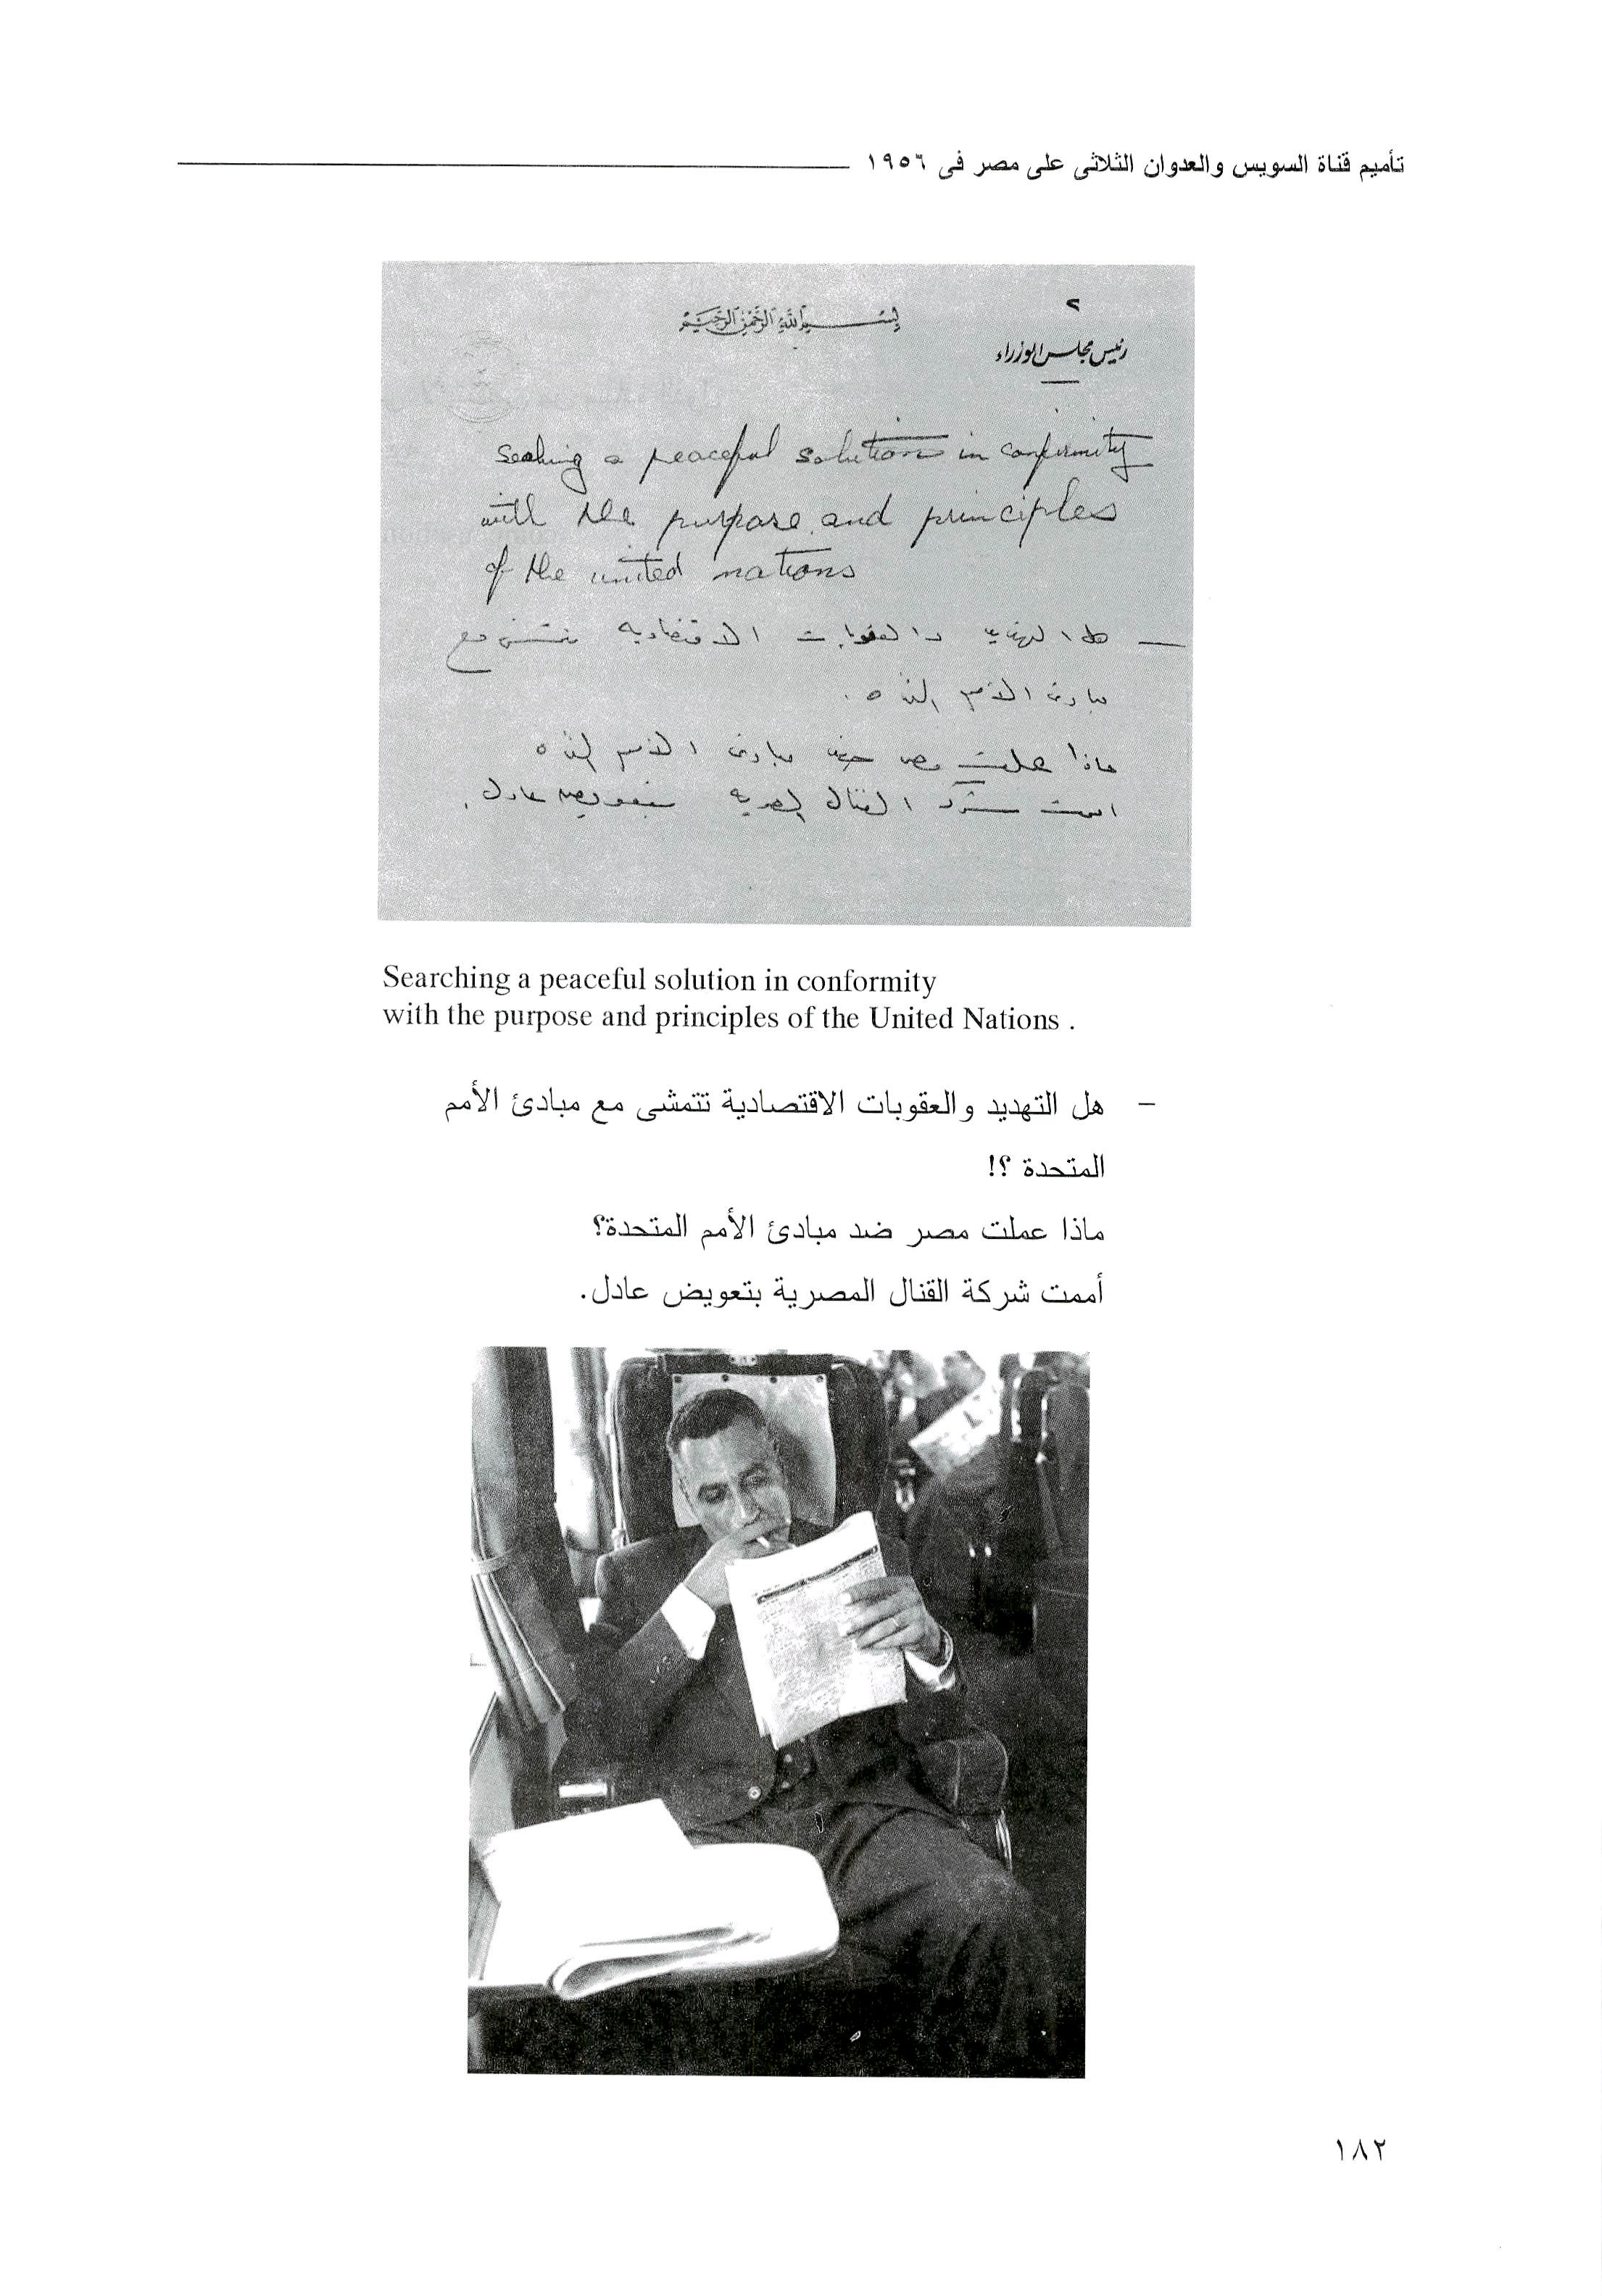 تأميم قناة السويس والعدوان الثلاثى على مصر فى ١٩٥٦
٢
بسم الله الرحمن الرحيم
رئيس مجلس الوزراء
Seeking a peaceful solution in conformity
with the purpose and principles
of the united nations
— هل التهديد والعقوبات الاقتصادية تتمشى مع
مبادئ الأمم المتحدة.
ماذا عملت مصر ضد مبادئ الأمم المتحدة
اممت شركة القنال المصرية بتعويض عادل.
Searching a peaceful solution in conformity
with the purpose and principles of the United Nations .
– هل التهديد والعقوبات الاقتصادية تتمشى مع مبادئ الأمم
المتحدة ؟!
ماذا عملت مصر ضد مبادئ الأمم المتحدة؟
أممت شركة القنال المصرية بتعويض عادل.
١٨٢